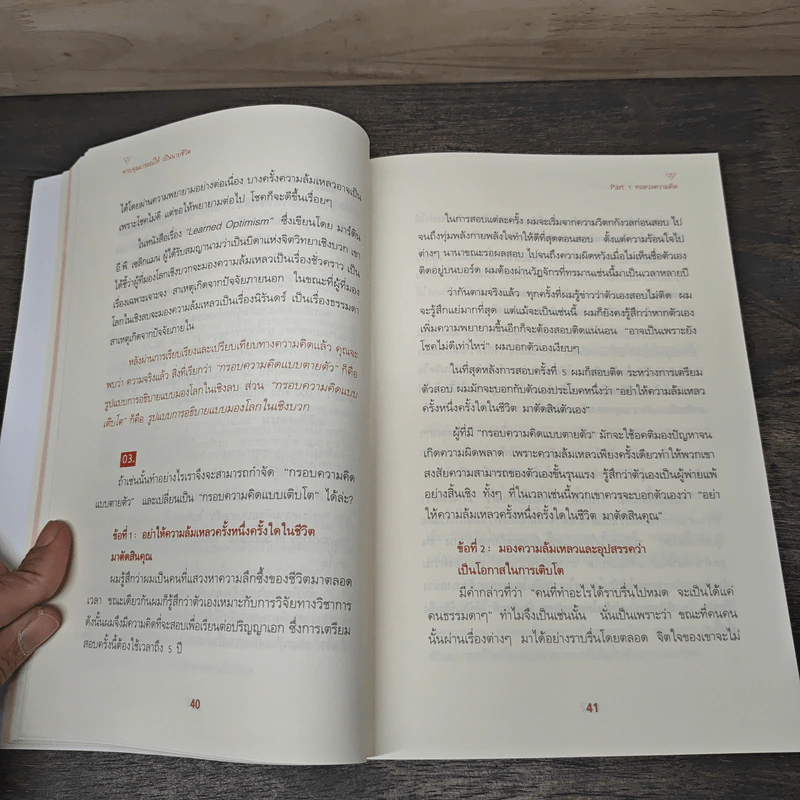 ควบคุมอารมณ์ได้ เป็นนายชีวิต
ได้โดยผ่านความพยายามอย่างต่อเนื่อง บางครั้งความล้มเหลวอาจเป็น
เพราะโชคไม่ดี แต่ขอให้พยายามต่อไป โชคก็จะดีขึ้นเรื่อยๆ
ในหนังสือเรื่อง “Learned Optimism” ซึ่งเขียนโดย มาร์ติน
อี.พี. เซลิกแมน ผู้ได้รับสมญานามว่าเป็นบิดาแห่งจิตวิทยาเชิงบวก เขา
ได้ชี้ว่าผู้ที่มองโลกเชิงบวกจะมองความล้มเหลวเป็นเรื่องชั่วคราว เป็น
เรื่องเฉพาะเจาะจง สาเหตุเกิดจากปัจจัยภายนอก ในขณะที่ผู้ที่มอง
โลกในเชิงลบจะมองความล้มเหลวเป็นเรื่องนิรันดร์ เป็นเรื่องธรรมดา
สาเหตุเกิดจากปัจจัยภายใน
หลังผ่านการเรียบเรียงและเปรียบเทียบทางความคิดแล้ว คุณจะ
พบว่า ความจริงแล้ว สิ่งที่เรียกว่า “กรอบความคิดแบบตายตัว” ก็คือ
รูปแบบการอธิบายแบบมองโลกในเชิงลบ ส่วน “กรอบความคิดแบบ
เติบโต” ก็คือ รูปแบบการอธิบายแบบมองโลกในเชิงบวก
03.
ถ้าเช่นนั้นทำอย่างไรเราจึงจะสามารถกำจัด “กรอบความคิด
แบบตายตัว” และเปลี่ยนเป็น “กรอบความคิดแบบเติบโต” ได้ล่ะ?
ข้อที่ 1: อย่าให้ความล้มเหลวครั้งหนึ่งครั้งใดในชีวิต
มาตัดสินคุณ
ผมรู้สึกว่าผมเป็นคนที่แสวงหาความลึกซึ้งของชีวิตมาตลอด
เวลา ขณะเดียวกันผมก็รู้สึกว่าตัวเองเหมาะกับการวิจัยทางวิชาการ
ดังนั้นผมจึงมีความคิดที่จะสอบเพื่อเรียนต่อปริญญาเอก ซึ่งการเตรียม
สอบครั้งนี้ต้องใช้เวลาถึง 5 ปี
40
Part 1 ทะลวงความคิด
ในการสอบแต่ละครั้ง ผมจะเริ่มจากความวิตกกังวลก่อนสอบ ไป
จนถึงทุ่มพลังกายพลังใจทำให้ดีที่สุดตอนสอบ ตั้งแต่ความร้อนใจไป
ต่างๆ นานาขณะรอผลสอบ ไปจนถึงความผิดหวังเมื่อไม่เห็นชื่อตัวเอง
ติดอยู่บนบอร์ด ผมต้องผ่านวัฏจักรที่ทรมานเช่นนี้มาเป็นเวลาหลายปี
ว่ากันตามจริงแล้ว ทุกครั้งที่ผมรู้ข่าวว่าตัวเองสอบไม่ติด ผม
จะรู้สึกแย่มากที่สุด แต่แม้จะเป็นเช่นนี้ ผมก็ยังคงรู้สึกว่าหากตัวเอง
เพิ่มความพยายามขึ้นอีกก็จะต้องสอบติดแน่นอน “อาจเป็นเพราะยัง
โชคไม่ดีเท่าไหร่” ผมบอกตัวเองเงียบๆ
ในที่สุดหลังการสอบครั้งที่ 5 ผมก็สอบติด ระหว่างการเตรียม
ตัวสอบ ผมมักจะบอกกับตัวเองประโยคหนึ่งว่า “อย่าให้ความล้มเหลว
ครั้งหนึ่งครั้งใดในชีวิต มาตัดสินตัวเอง”
ผู้ที่มี “กรอบความคิดแบบตายตัว” มักจะใช้อคติมองปัญหาจน
เกิดความผิดพลาด เพราะความล้มเหลวเพียงครั้งเดียวทำให้พวกเขา
สงสัยความสามารถของตัวเองขั้นรุนแรง รู้สึกว่าตัวเองเป็นผู้พ่ายแพ้
อย่างสิ้นเชิง ทั้งๆ ที่ในเวลาเช่นนี้พวกเขาควรจะบอกตัวเองว่า “อย่า
ให้ความล้มเหลวครั้งหนึ่งครั้งใดในชีวิต มาตัดสินคุณ”
ข้อที่ 2: มองความล้มเหลวและอุปสรรคว่า
เป็นโอกาสในการเติบโต
มีคำกล่าวที่ว่า “คนที่ทำอะไรได้ราบรื่นไปหมด จะเป็นได้แค่
คนธรรมดาๆ” ทำไมจึงเป็นเช่นนั้น นั่นเป็นเพราะว่า ขณะที่คนคน
นั้นผ่านเรื่องต่างๆ มาได้อย่างราบรื่นโดยตลอด จิตใจของเขาจะไม่
41